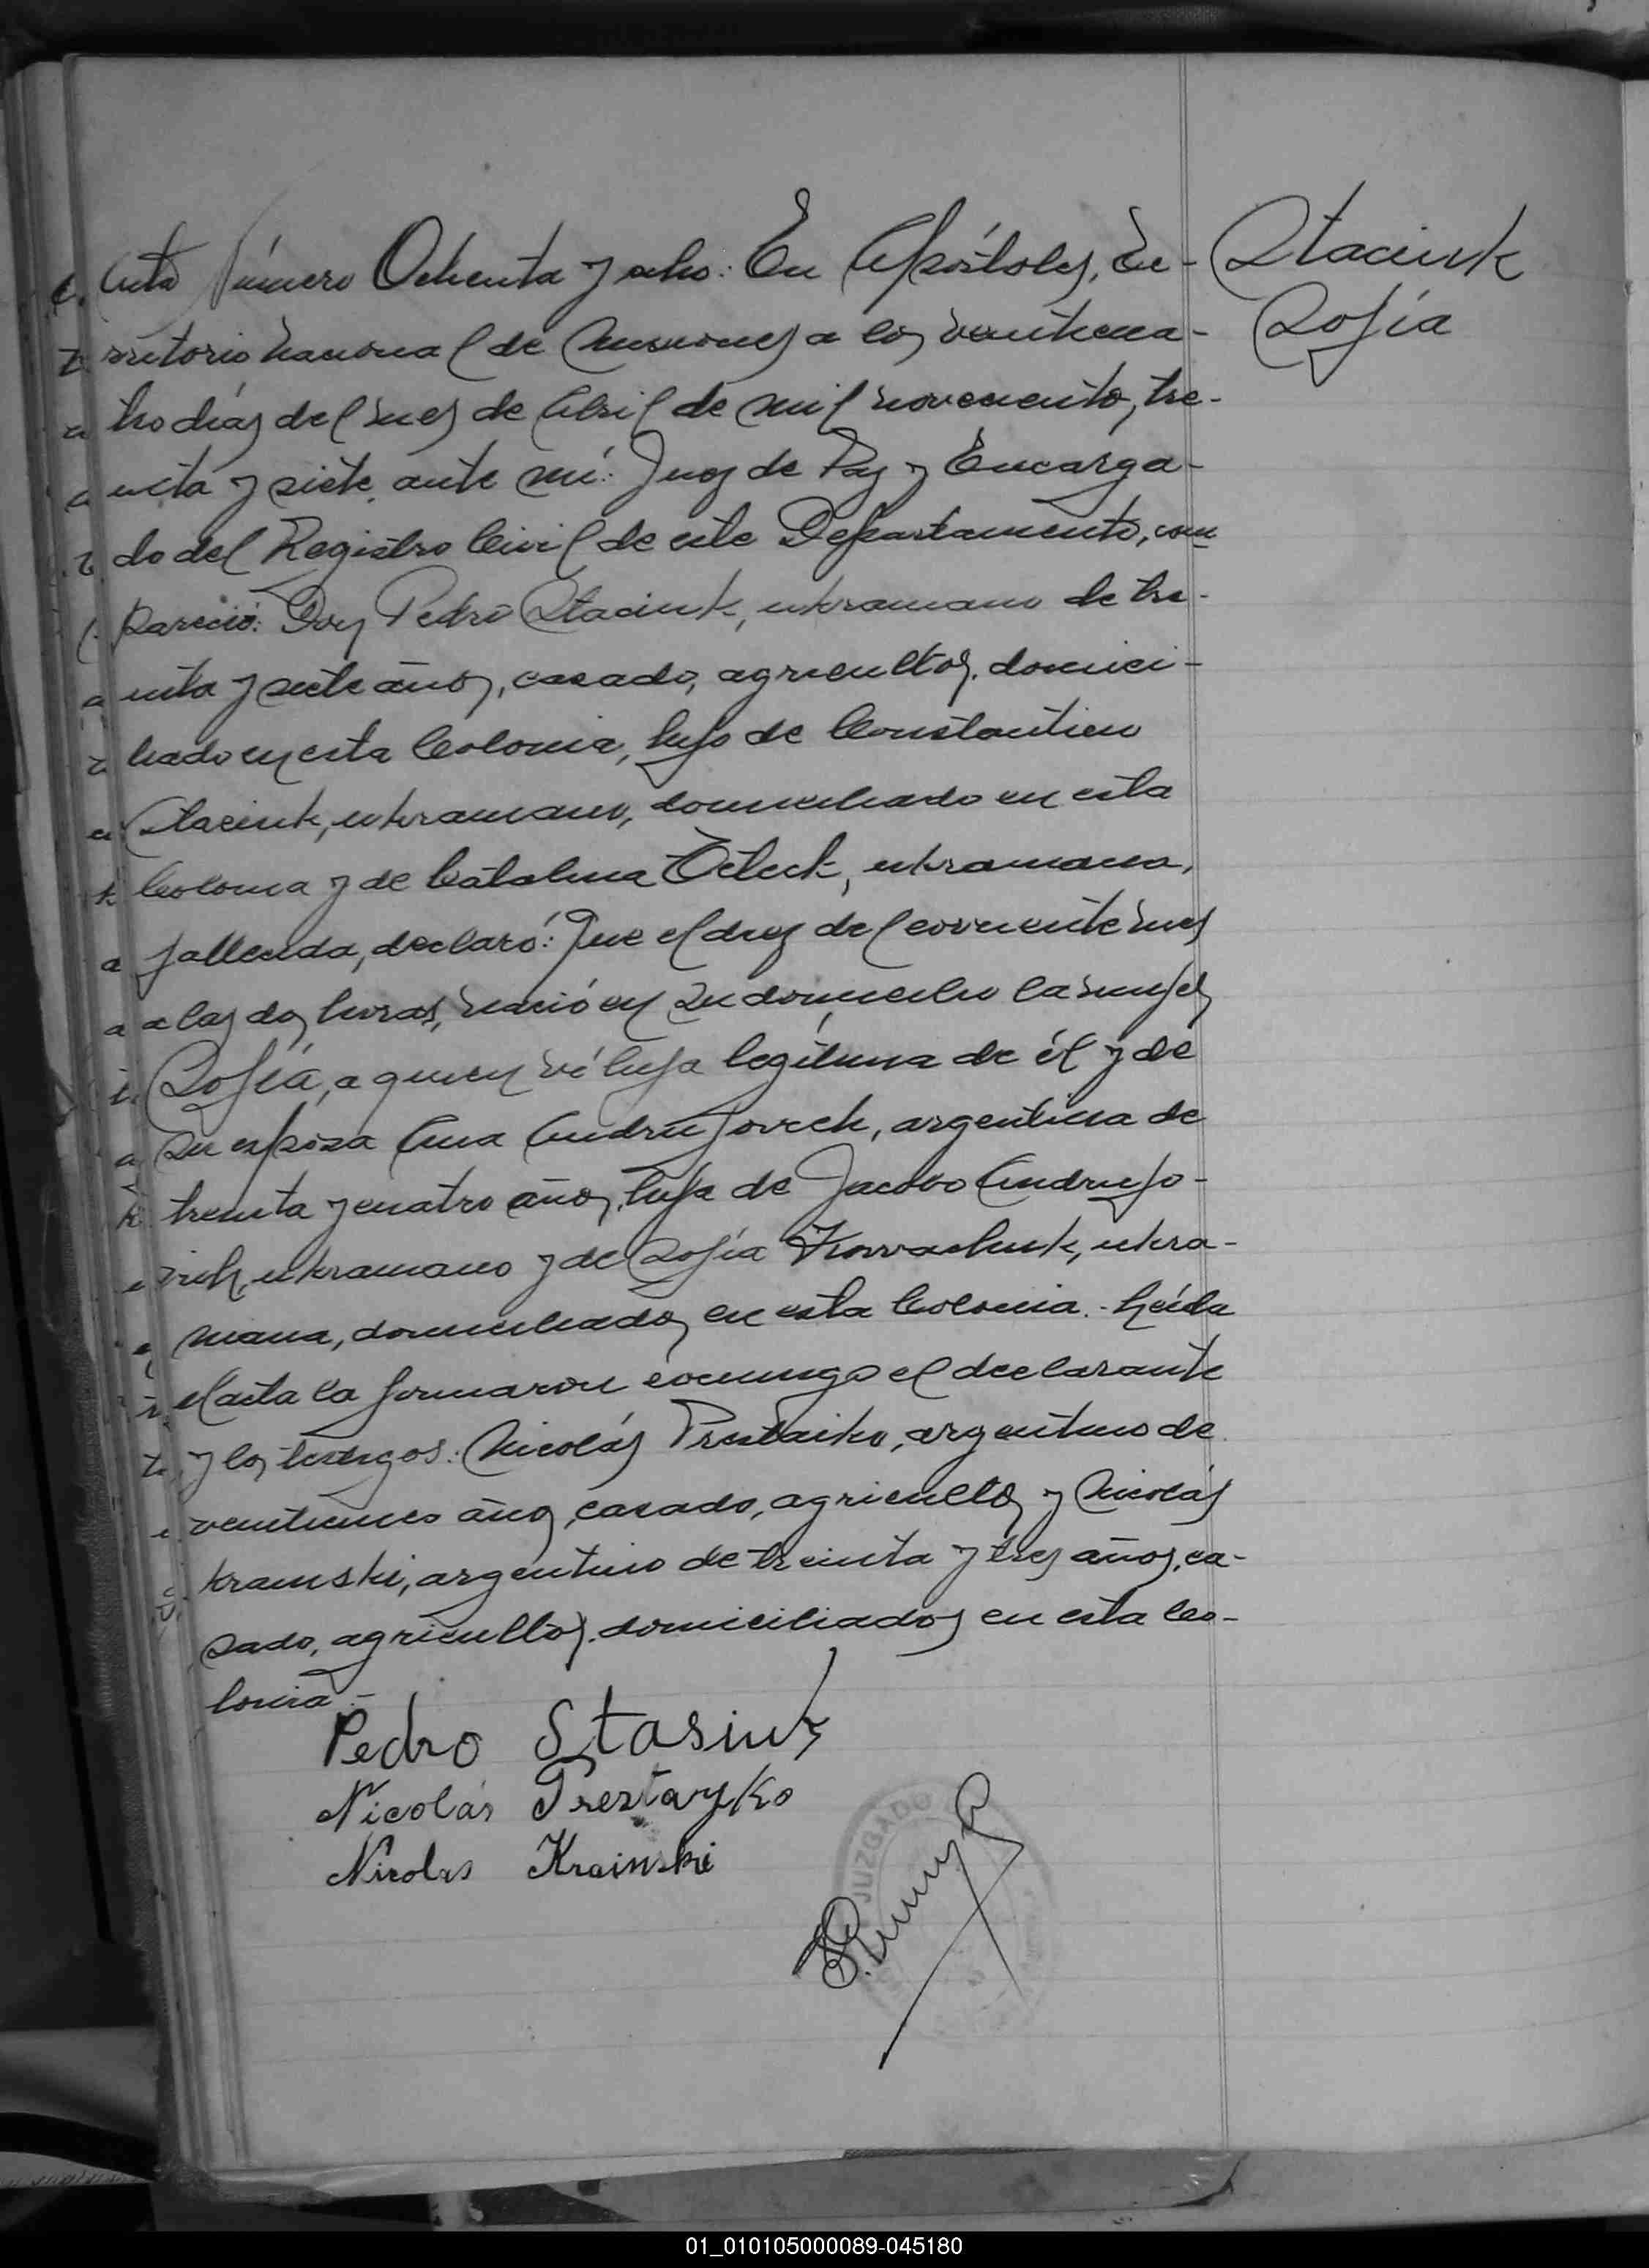 Acta Número Ochenta y ocho: En Apóstoles, Te-
rritorio Nacional de Misiones a los veinticua-
tro días del mes de Abril de mil novecientos tre-
inta y siete, ante mí: Juez de Paz y Encarga-
do del Registro Civil de este Departamento, com
pareció: Don Pedro Staciuk, ukraniano de tre-
inta y siete años, casado, agricultor, domici-
liado en esta Colonia, hijo de Constantino
Staciuk, ukraniano, domiciliado en esta
Colonia y de Catalina ukraniana,
fallecida, declaró: Que el diez del corriente mes
a las dos horas, nació en su domicilio la mujer
Sofía, a quien ví hija legítima de él y de
su esposa Ana Andrujovich, argentina de
treinta y cuatro años, hija de Jacobo Andrujo-
vich, ukraniano y de Sofía Kowalchuk, ukra-
niana, domiciliados en esta Colonia.- Leída
el acta la firmaron conmigo el declarante
y los testigos: Nicolás Prestaiko, argentino de
veintiunos años, casado, agricultor y Nicolás
Krainski, argentino de treinta y tres años, ca-
sado, agricultor, domiciliados en esta Co-
lonia.-
Staciuk
Sofía
Pedro Stasiuk
Nicolás Prestayko
Nicolas Krainski
JUZGADO
01_010105000089-045180